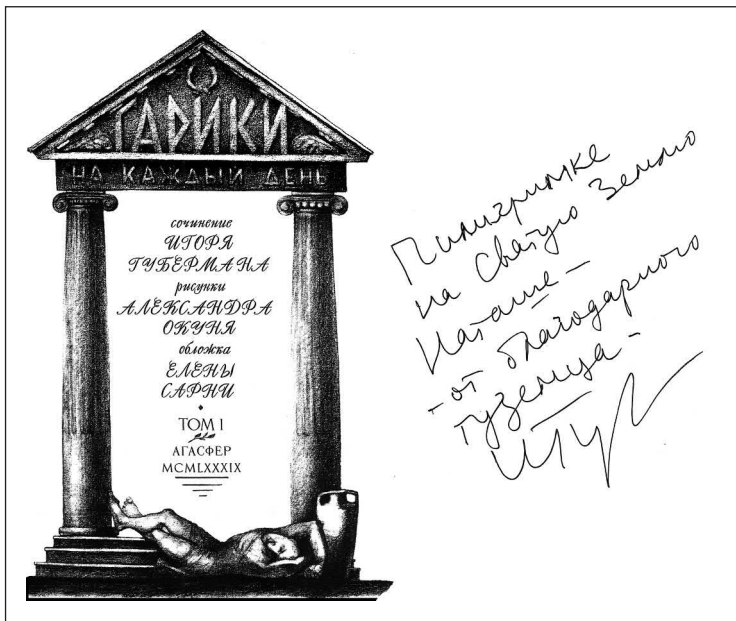 ГАРИКИ
НА КАЖДЫЙ ДЕНЬ
сочинение
ИГОРЯ
ГУБЕРМАНА
рисунки
АЛЕКСАНДРА
ОКУНЯ
обложка
ЕЛЕНЫ
САРНИ
ТОМ I
АГАСФЕР
MCMLXXXIX
Пилигримке
на Святую Землю
Наташе –
– от благодарного
туземца –